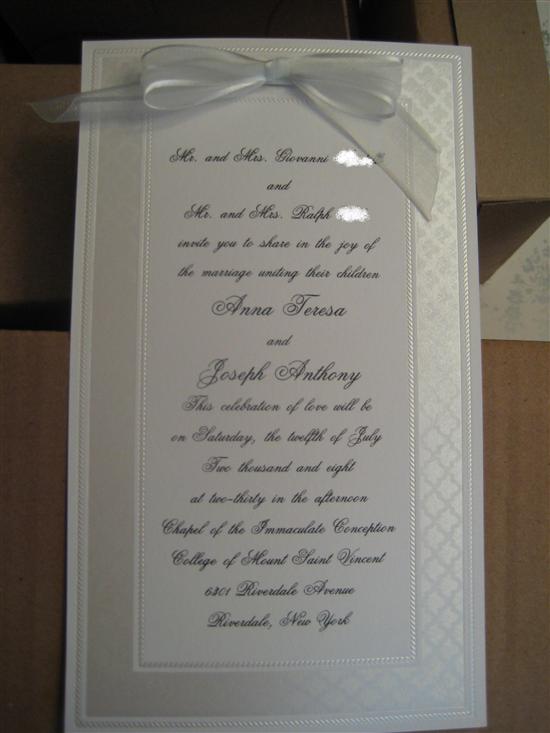 Mr. and Mrs. Giovanni
and
Mr. and Mrs. Ralph
invite you to share in the joy of
the marriage uniting their children
Anna Teresa
and
Joseph Anthony
This celebration of love will be
on Saturday, the twelfth of July
Two thousand and eight
at two-thirty in the afternoon
Chapel of the Immaculate Conception
College of Mount Saint Vincent
6301 Riverdale Avenue
Riverdale, New York